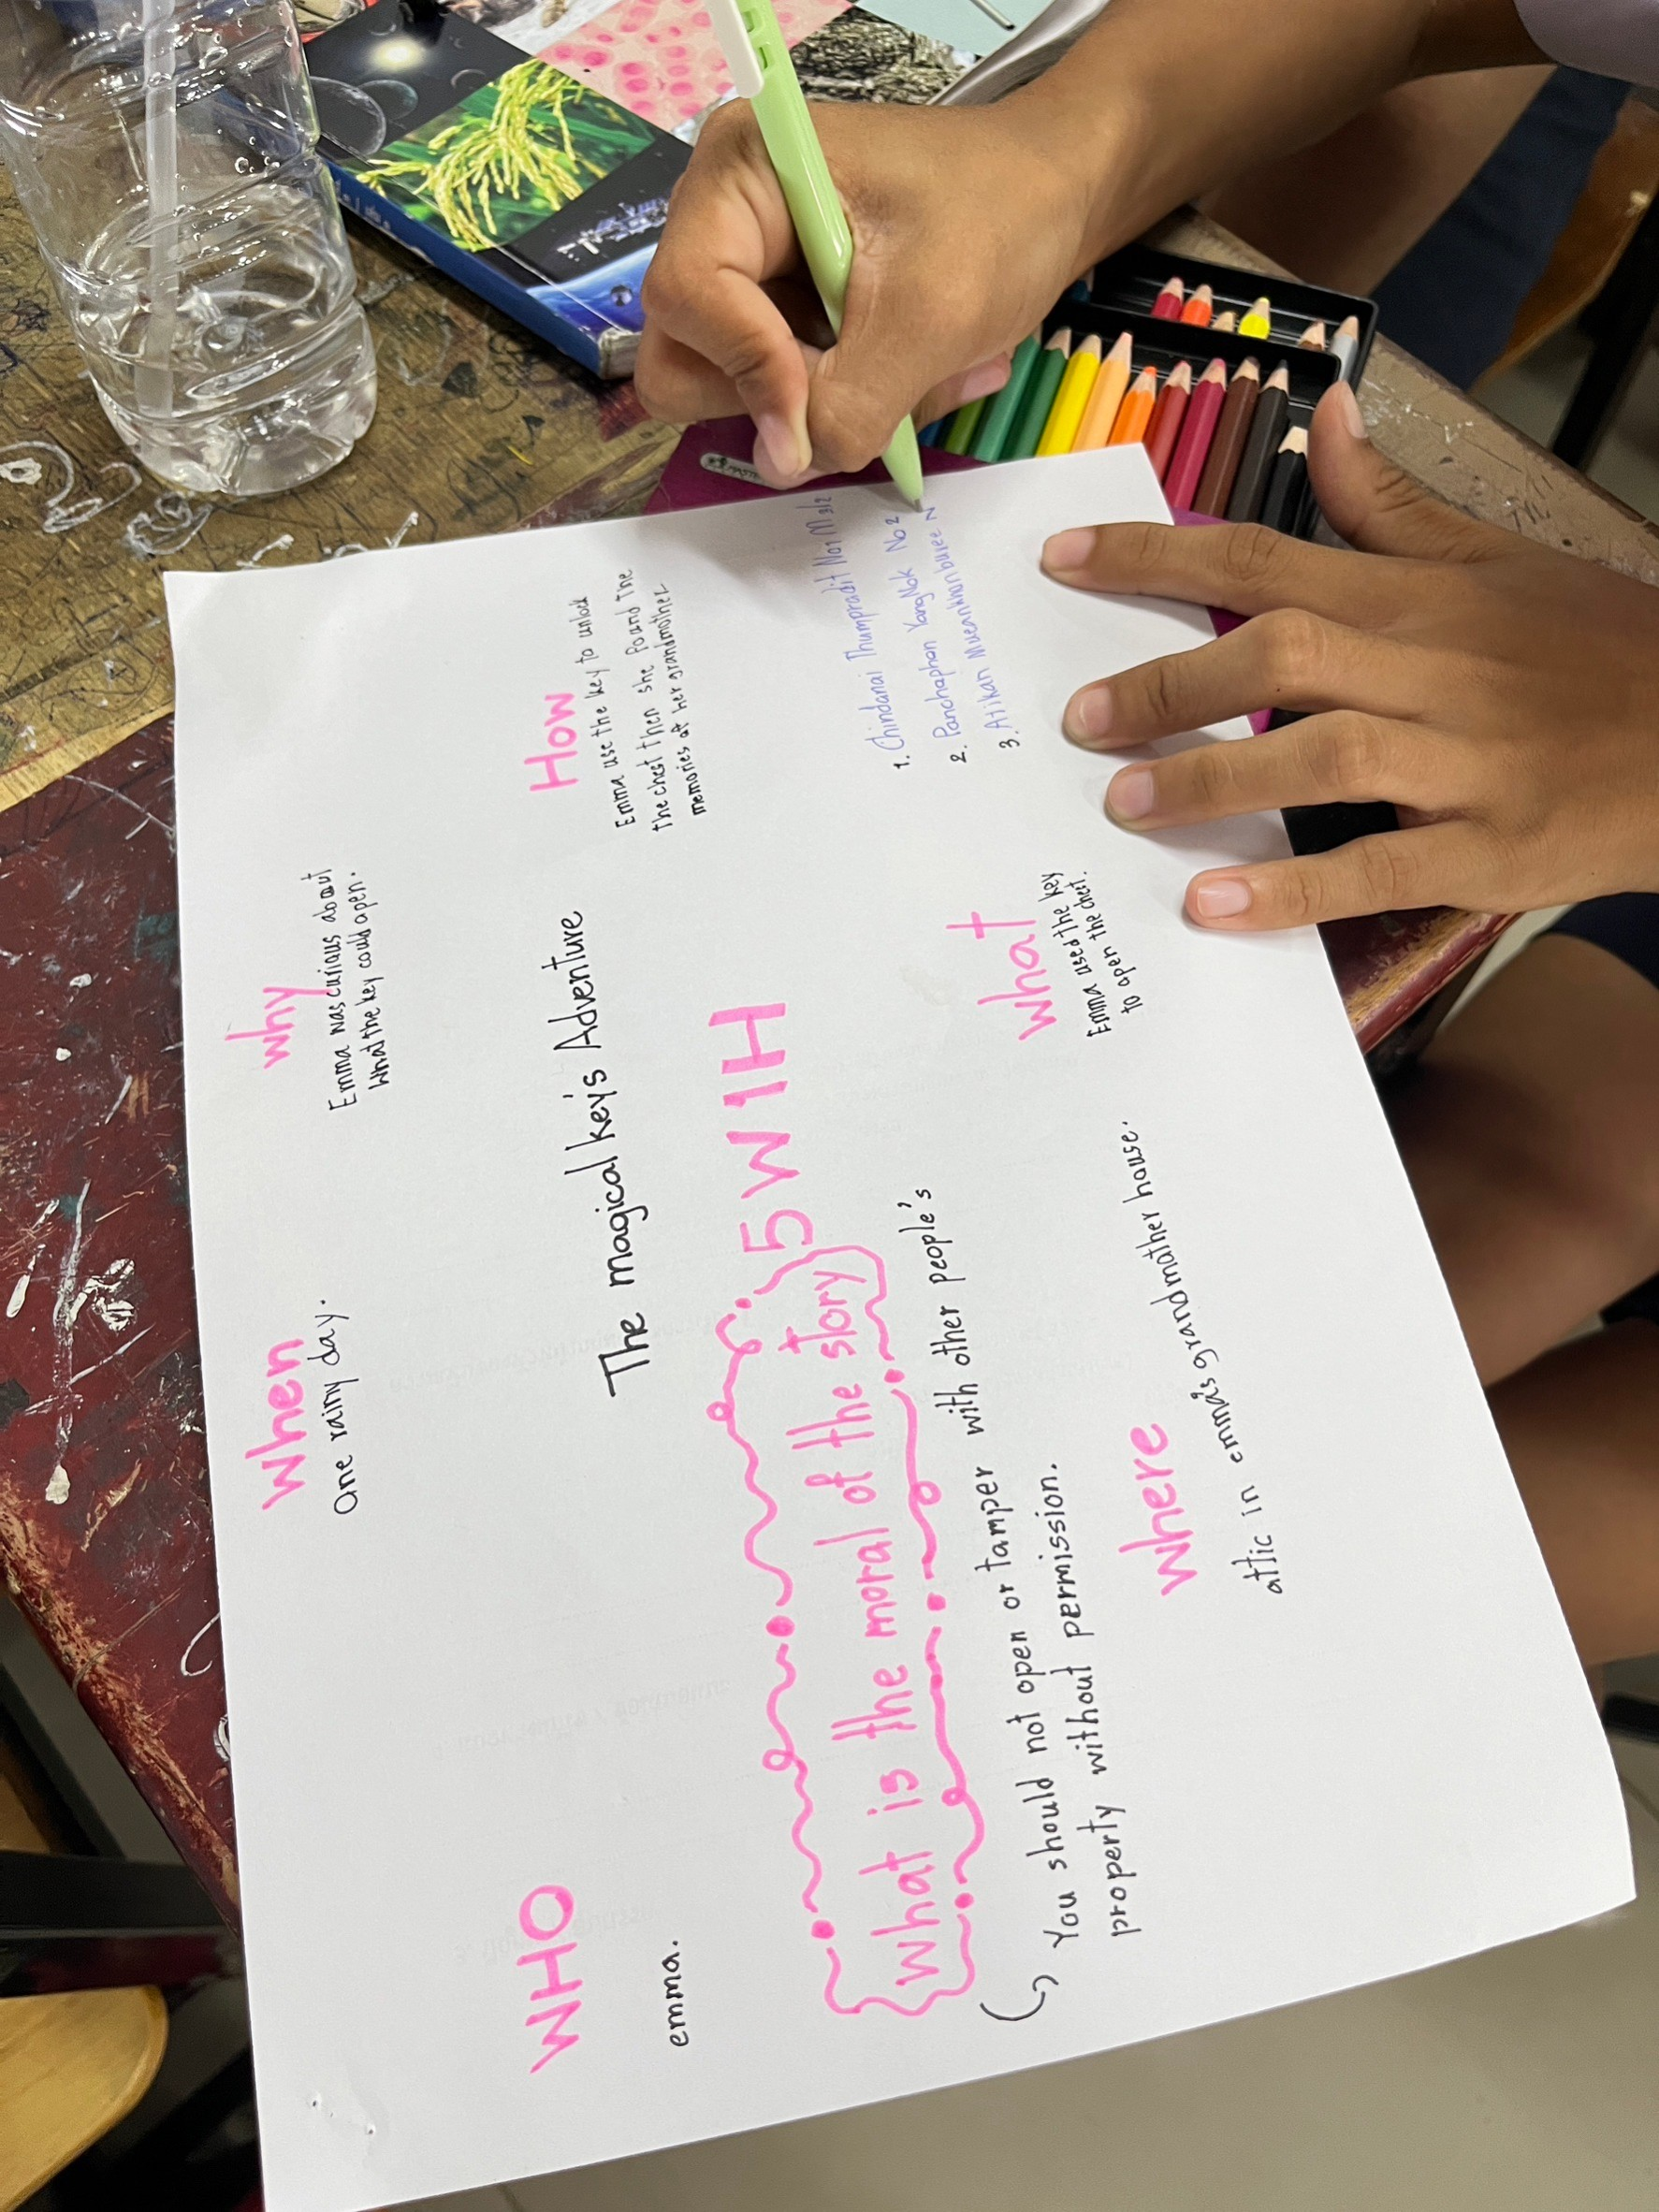 WHO
emma.
when
One rainy day.
why
Emma was curious about
What the key could open.
The magical key's Adventure
How
Emma use the key to unlock
the chest then she found the
memories of her grandmother
5W1H
What is the moral of the story
You should not open or tamper with other people's
property without permission.
where
attic in emma's grandmather house.
what
Emma used the key
to open the chest.
1. Chindanai Thumpradit No1 M 3/2
2. Panchaphan YangNok No2
3. Atikan Mueankhanburee N